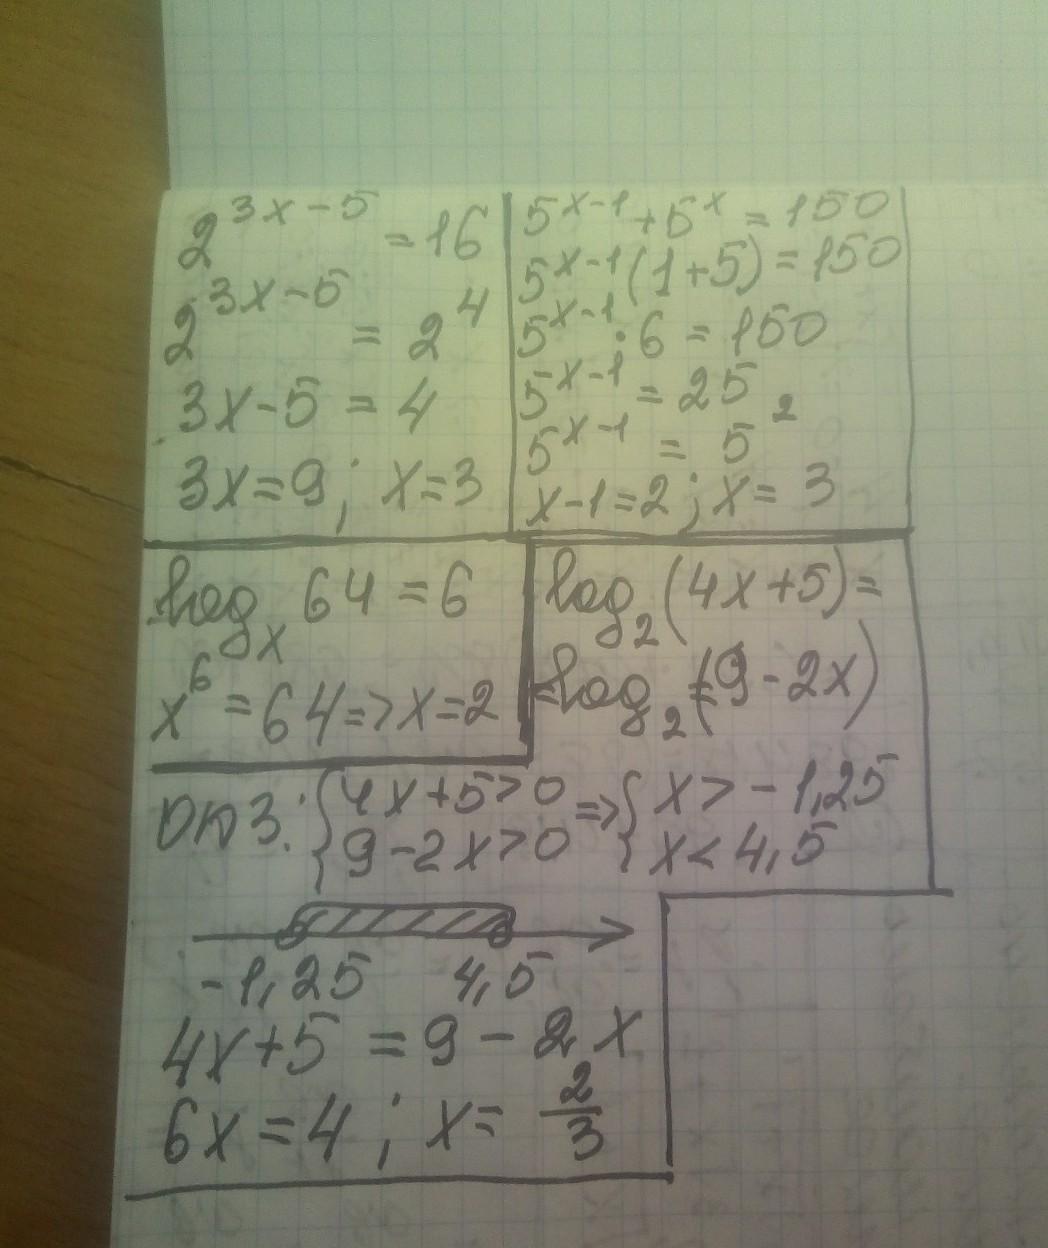 2^{3x-5} = 16
2^{3x-5} = 2^4
3x-5 = 4
3x=9; x=3
5^{x-1}+5^x = 150
5^{x-1}(1+5)=150
5^{x-1}·6 = 150
5^{x-1} = 25
5^{x-1} = 5^2
x-1=2; x= 3
log_x 64 = 6
x^6 = 64 => x=2
log_2(4x+5)=
=log_2(9-2x)
ОДЗ: {4x+5>0 => {x>-1,25
{9-2x>0 {x<4,5
-1,25 4,5
4x+5 = 9-2x
6x=4; x= 2/3